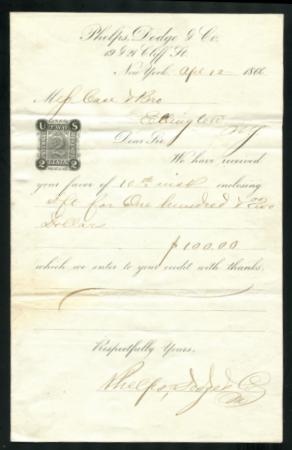 Phelps, Dodge & Co.
19 & 21 Cliff St.
New York Apl 12 186
Mess Case & Bro
U S
2
Dear Sir
We have received
your favor of 10th inst enclosing
dft for One hundred &
Dollars
$100.00
which we enter to your credit with thanks.
Respectfully Yours,
Phelps, Dodge & Co